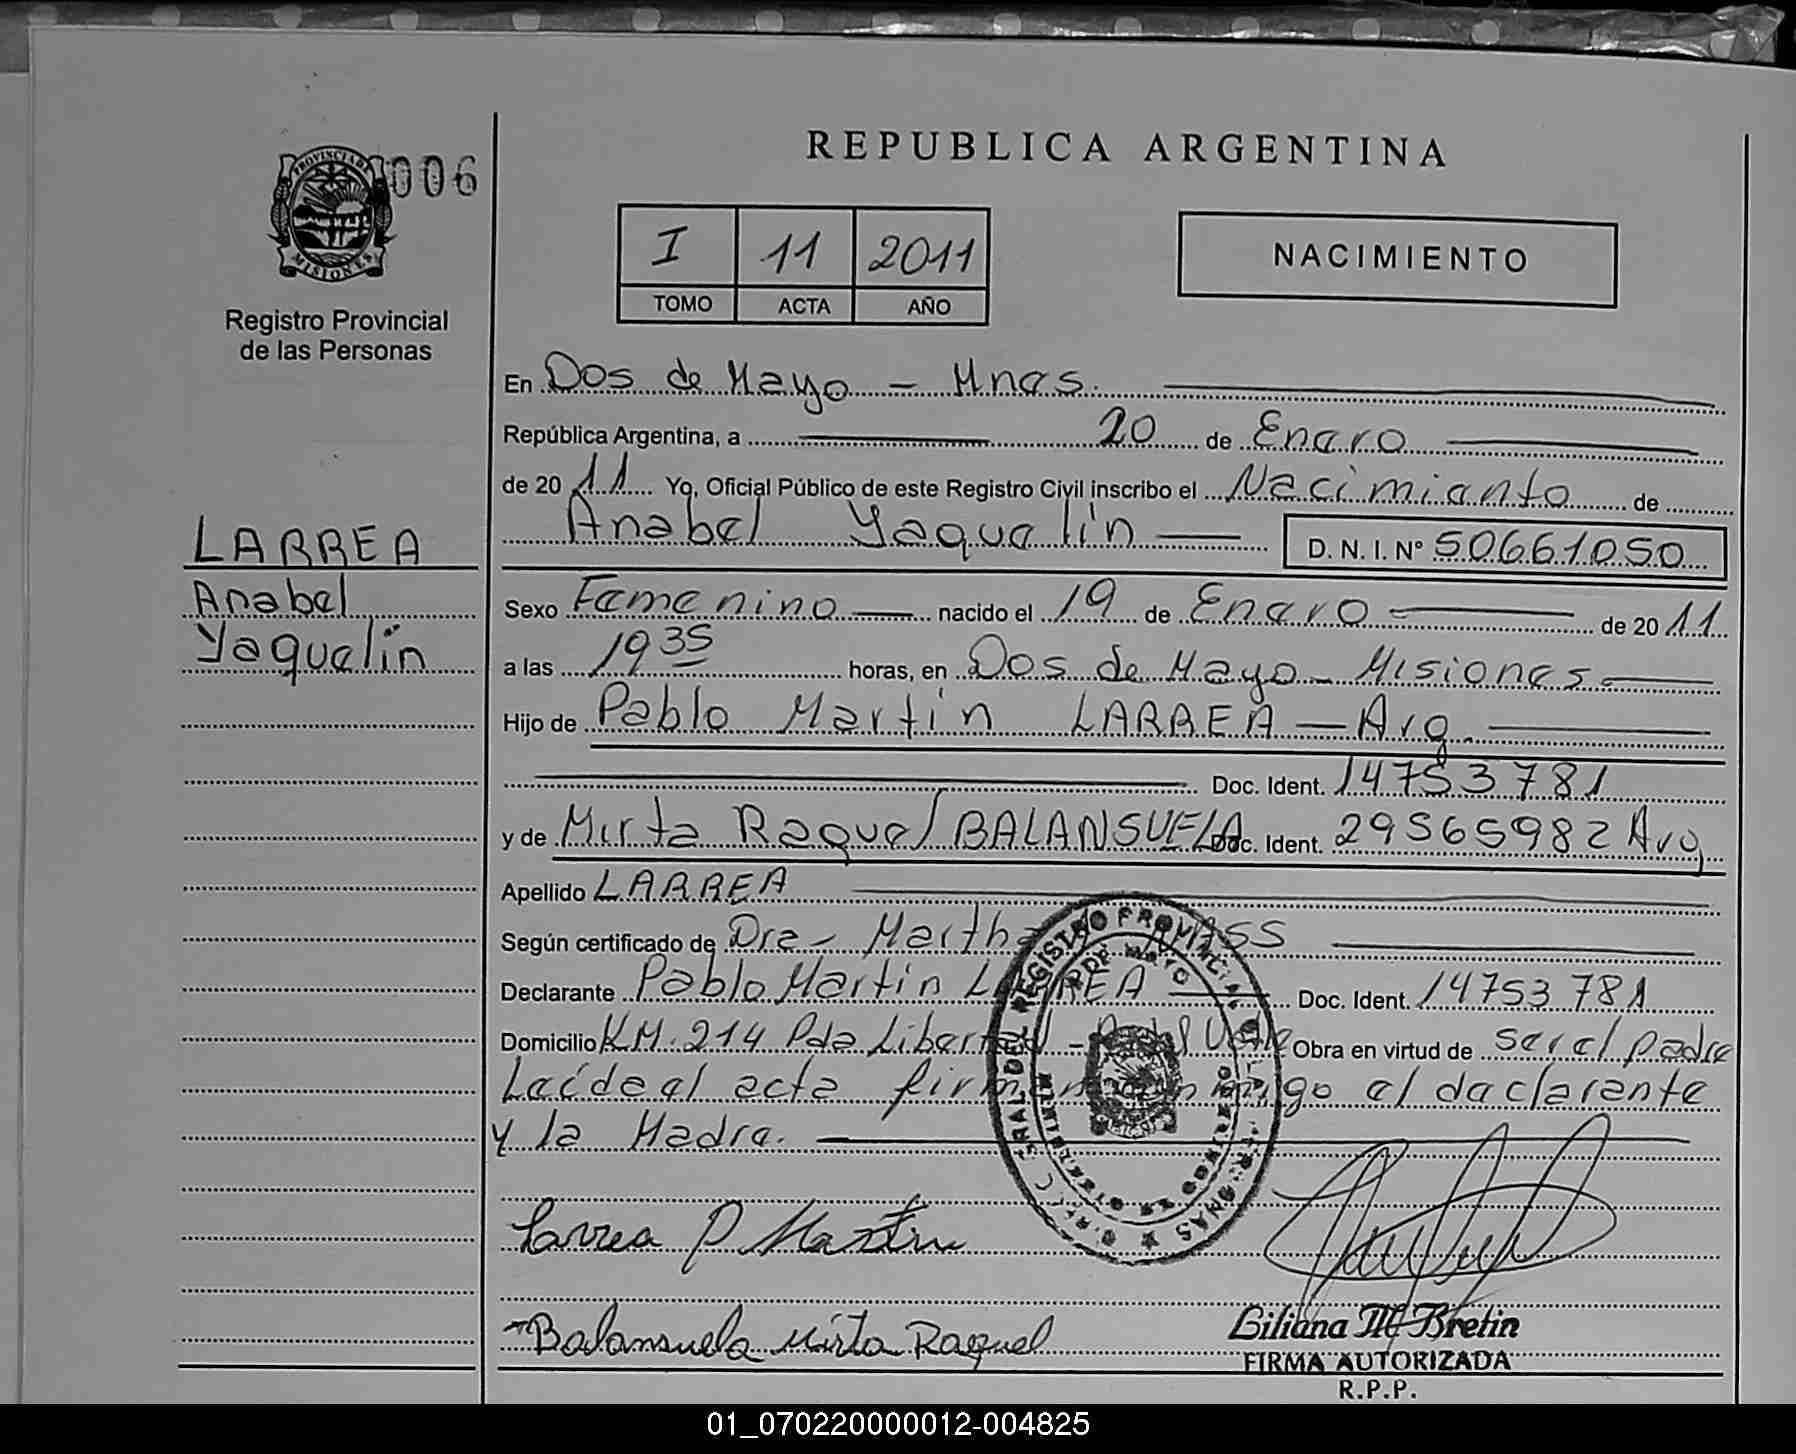 REPUBLICA ARGENTINA
PROVINCIA DE MISIONES
006
Registro Provincial
de las Personas
I 11 2011
TOMO ACTA AÑO
NACIMIENTO
En Dos de Mayo - Mnes.
República Argentina, a 20 de Enero
de 2011 Yo, Oficial Público de este Registro Civil inscribo el Nacimiento de
Anabel Yaquelin D. N. I. Nº 50661050
LARREA
Anabel
Yaquelín
Sexo Femenino nacido el 19 de Enero de 2011
a las 19 35 horas, en Dos de Mayo - Misiones
Hijo de Pablo Martin LARREA - Arg.
Doc. Ident. 14753781
y de Mirta Raquel BALANSUELA Doc. Ident. 29565982 Arg
Apellido LARREA
Según certificado de Dra - Martha
Declarante Pablo Martin LARREA Doc. Ident. 14753781
Domicilio KM. 214 Pda Libertad - Obra en virtud de ser el padre
Leída el acta firman conmigo el declarante
y la Madre.
Larrea P Martin
Balansuela Mirta Raquel
Liliana M Bretin
FIRMA AUTORIZADA
R.P.P.
01_070220000012-004825